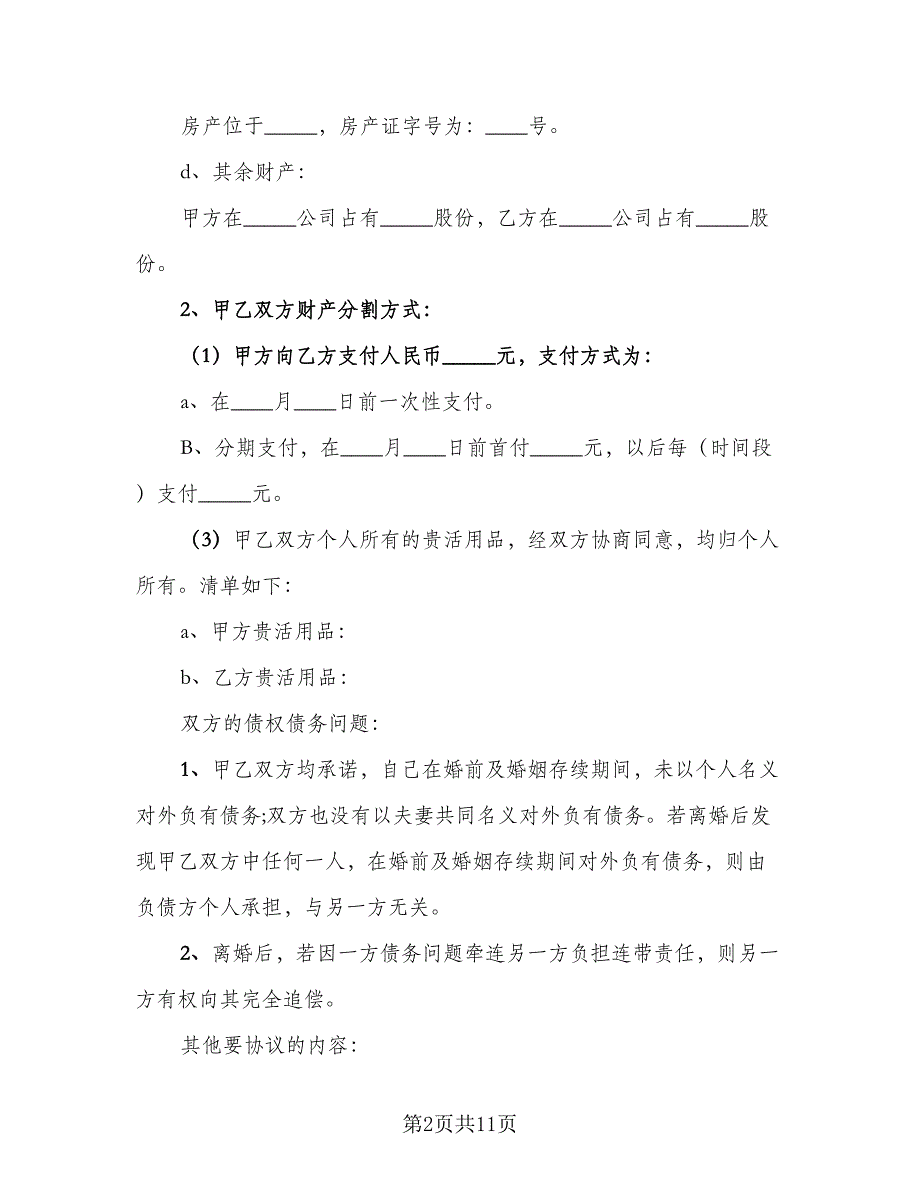 房产位于_____，房产证字号为：____号。
d、其余财产：
甲方在_____公司占有_____股份，乙方在_____公司占有_____股
份。
2、甲乙双方财产分割方式：
（1）甲方向乙方支付人民币_____元，支付方式为：
a、在____月____日前一次性支付。
B、分期支付，在____月____日前首付_____元，以后每（时间段
）支付_____元。
（3）甲乙双方个人所有的贵活用品，经双方协商同意，均归个人
所有。清单如下：
a、甲方贵活用品：
b、乙方贵活用品：
双方的债权债务问题：
1、甲乙双方均承诺，自己在婚前及婚姻存续期间，未以个人名义
对外负有债务;双方也没有以夫妻共同名义对外负有债务。若离婚后发
现甲乙双方中任何一人，在婚前及婚姻存续期间对外负有债务，则由
负债方个人承担，与另一方无关。
2、离婚后，若因一方债务问题牵连另一方负担连带责任，则另一
方有权向其完全追偿。
其他要协议的内容：
第2页共11页